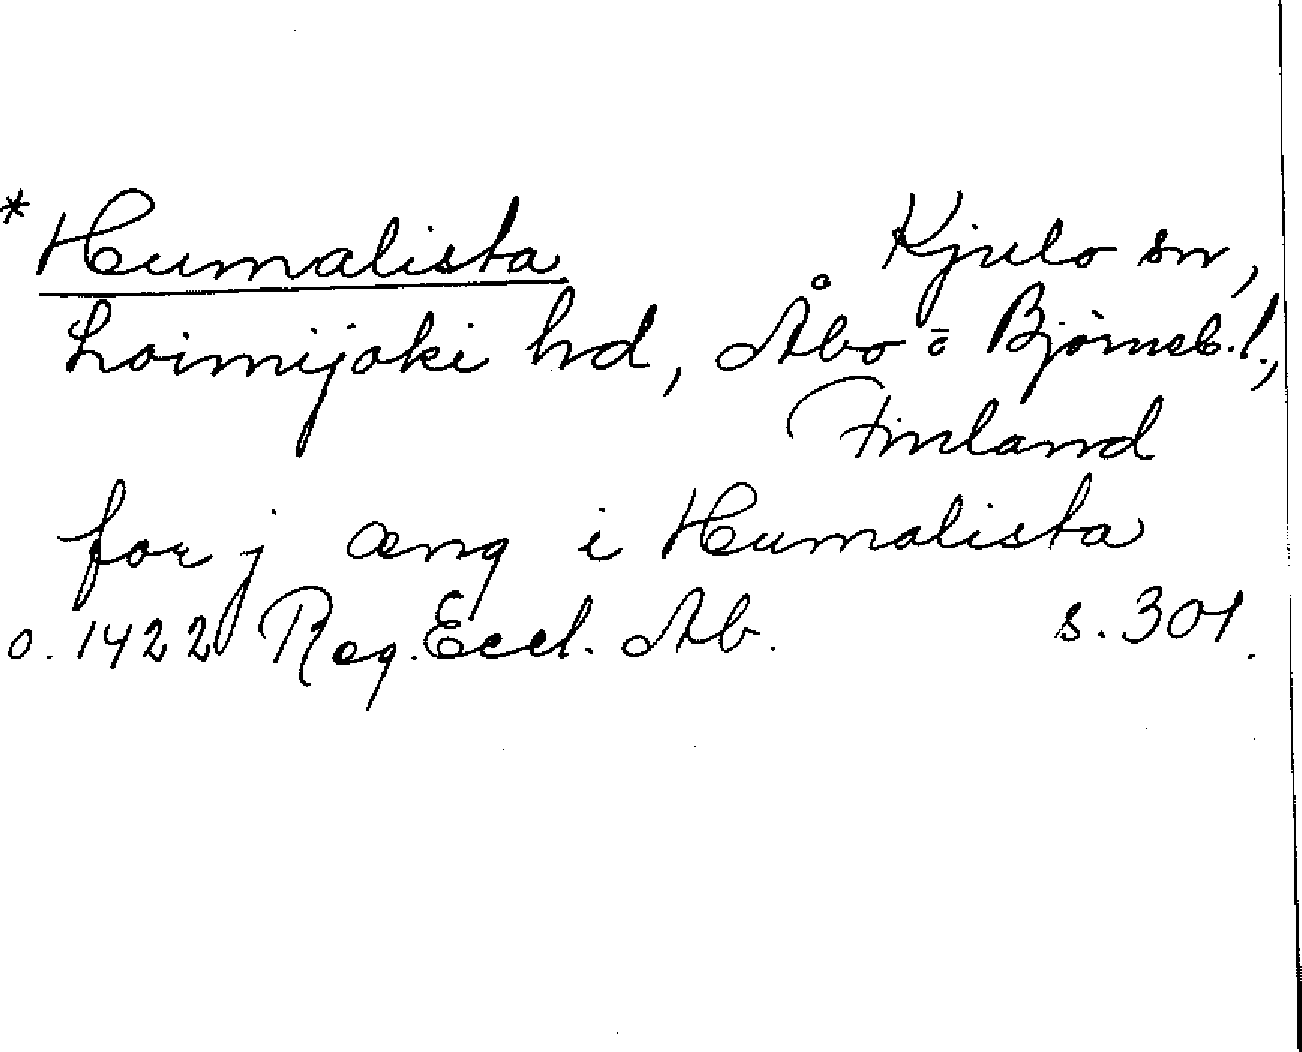 *Humalista Kjulo sn,
Loimijoki hd, Åbo o Björneb. l.,
Finland
for j æng i Humalista
o. 1422 Reg. Eccl. Ab. s. 301.